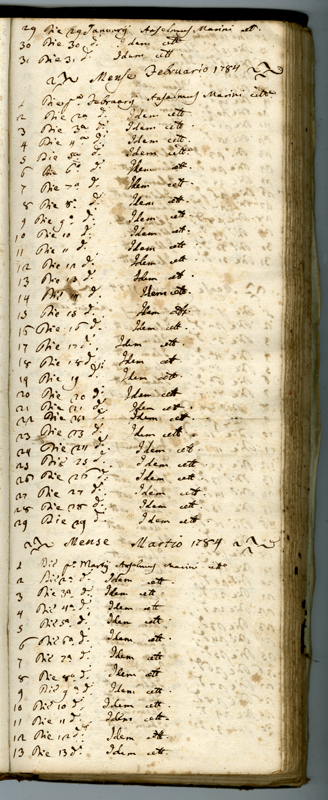 29 Die 29 Januarij Anselmus Marini cett.
30 Die 30 d.° Idem cett
31 Die 31 d.° Idem cett
Mense Februario 1784
1 Die p.ª Februarij Anselmus Marini cett.
2 Die 2ª d.° Idem cett
3 Die 3ª d.° Idem cett.
4 Die 4ª d.° Idem cett
5 Die 5ª d.° Idem cett
6 Die 6ª d.° Idem cett
7 Die 7ª d.° Idem cett.
8 Die 8ª d.° Idem cett.
9 Die 9ª d.° Idem cett.
10 Die 10 d.° Idem cett.
11 Die 11 d.° Idem cett.
12 Die 12 d.° Idem cett.
13 Die 13 d.° Idem cett.
14 Die Idem cett.
15 Die 15 d.° Idem cett.
16 Die 16 d.° Idem cett.
17 Die 17 d.° Idem cett
18 Die 18 d.° Idem cett
19 Die 19 d.° Idem cett.
20 Die 20 d.° Idem cett
21 Die 21 d.° Idem cett
22 Die 22 d.° Idem cett
23 Die 23 d.° Idem cett
24 Die 24 d.° Idem cett
25 Die 25 d.° Idem cett
26 Die 26 d.° Idem cett
27 Die 27 d.° Idem cett
28 Die 28 d.° Idem cett
29 Die 29 d.° Idem cett
Mense Martio 1784
1 Die p.ª Martij Anselmus Marini cett.
2 Die 2ª d.° Idem cett.
3 Die 3ª d.° Idem cett.
4 Die 4ª d.° Idem cett.
5 Die 5ª d.° Idem cett.
6 Die 6ª d.° Idem cett.
7 Die 7ª d.° Idem cett
8 Die 8ª d.° Idem cett
9 Die 9ª d.° Idem cett.
10 Die 10 d.° Idem cett.
11 Die 11 d.° Idem cett.
12 Die 12 d.° Idem cett.
13 Die 13 d.° Idem cett